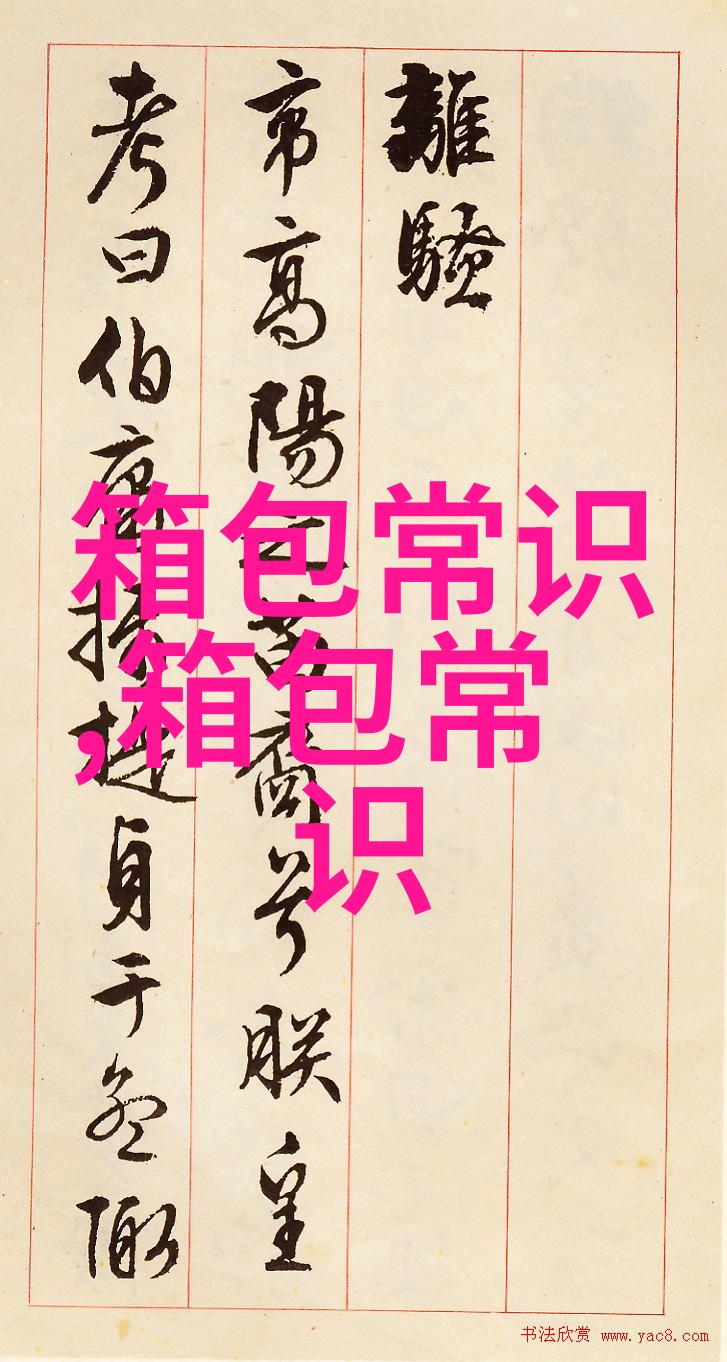 離騷
帝高陽之苗裔兮朕皇
考曰伯庸攝提貞于孟陬
箱包常识
,箱包常
识
书法欣赏 www.yac8.com